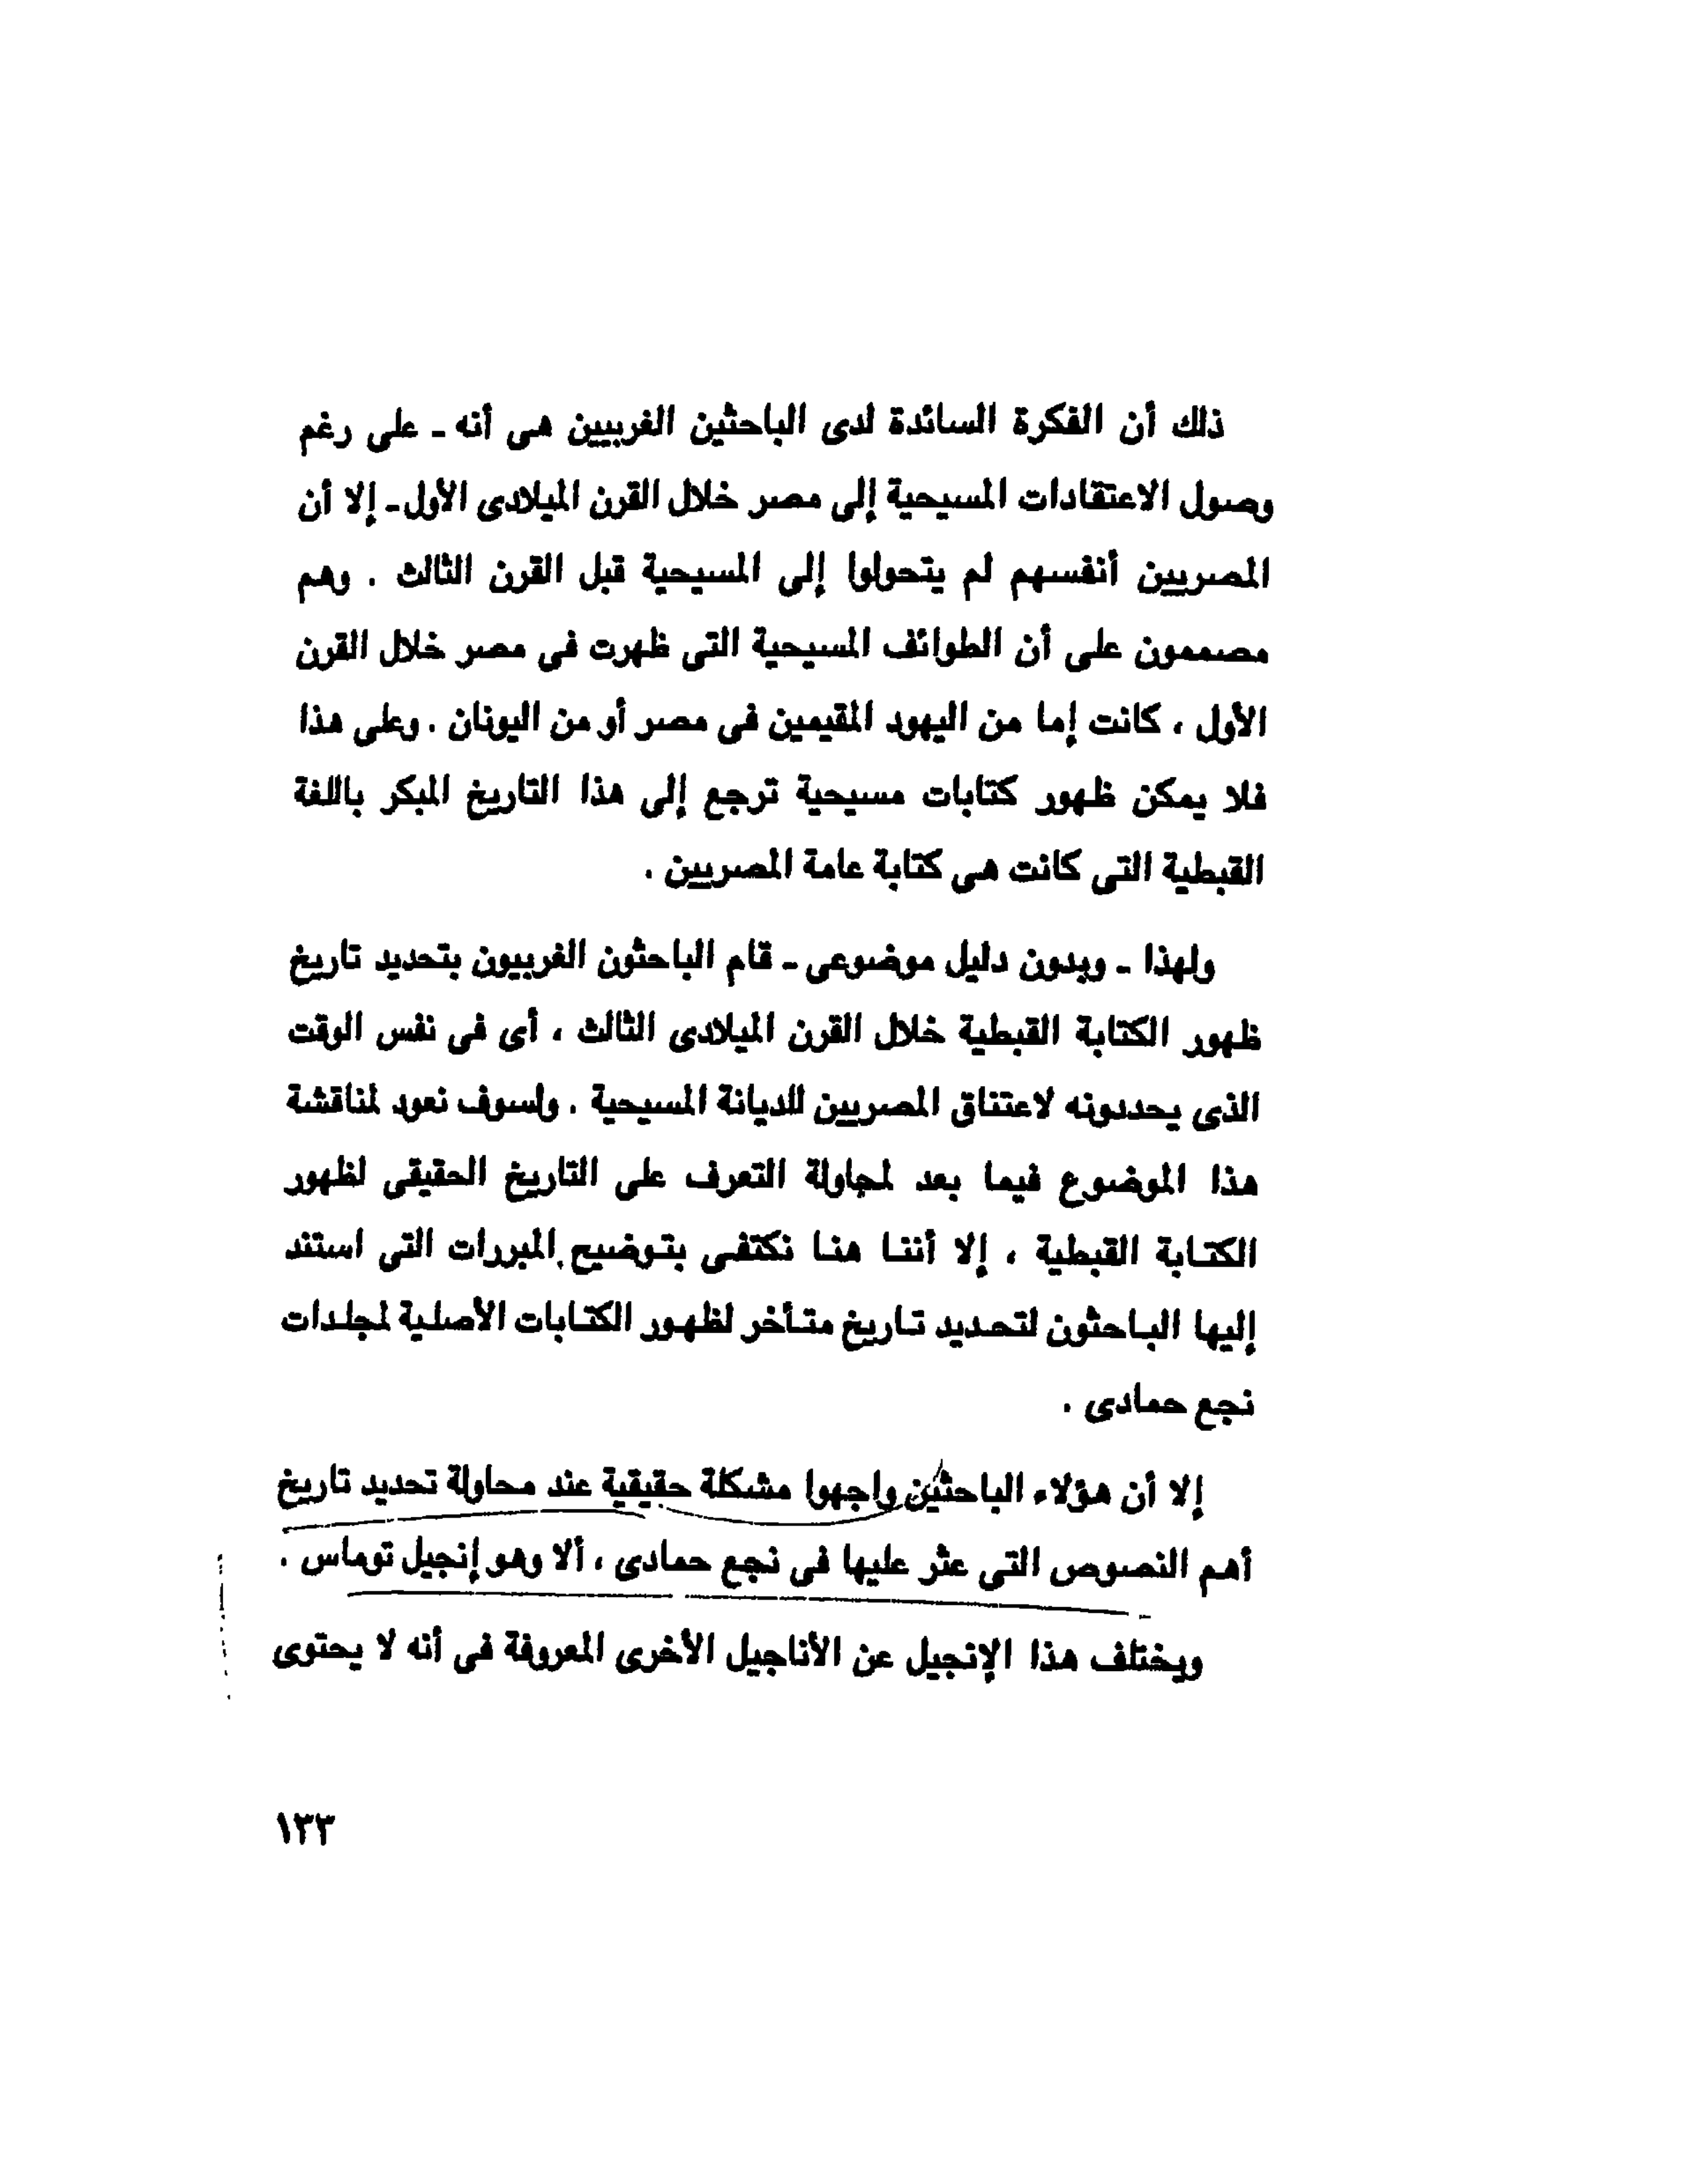 ذلك أن الفكرة السائدة لدى الباحثين الغربيين هى أنه ـ على رغم
وصول الاعتقادات المسيحية إلى مصر خلال القرن الميلادى الأول ـ إلا أن
المصريين أنفسهم لم يتحولوا إلى المسيحية قبل القرن الثالث . وهم
مصممون على أن الطوائف المسيحية التى ظهرت فى مصر خلال القرن
الأول ، كانت إما من اليهود المقيمين فى مصر أو من اليونان . وعلى هذا
فلا يمكن ظهور كتابات مسيحية ترجع إلى هذا التاريخ المبكر باللغة
القبطية التى كانت هى كتابة عامة المصريين .
ولهذا ـ وبدون دليل موضوعى ـ قام الباحثون الغربيون بتحديد تاريخ
ظهور الكتابة القبطية خلال القرن الميلادى الثالث ، أى فى نفس الوقت
الذى يحددونه لاعتناق المصريين للديانة المسيحية . ولسوف نعود لمناقشة
هذا الموضوع فيما بعد لمحاولة التعرف على التاريخ الحقيقى لظهور
الكتابة القبطية ، إلا أننا هنا نكتفى بتوضيح المبررات التى استند
إليها الباحثون لتحديد تاريخ متأخر لظهور الكتابات الأصلية لمجلدات
نجع حمادى .
إلا أن هؤلاء الباحثين واجهوا مشكلة حقيقية عند محاولة تحديد تاريخ
أهم النصوص التى عثر عليها فى نجع حمادى ، ألا وهو إنجيل توماس .
ويختلف هذا الإنجيل عن الأناجيل الأخرى المعروفة فى أنه لا يحتوى
١٣٣